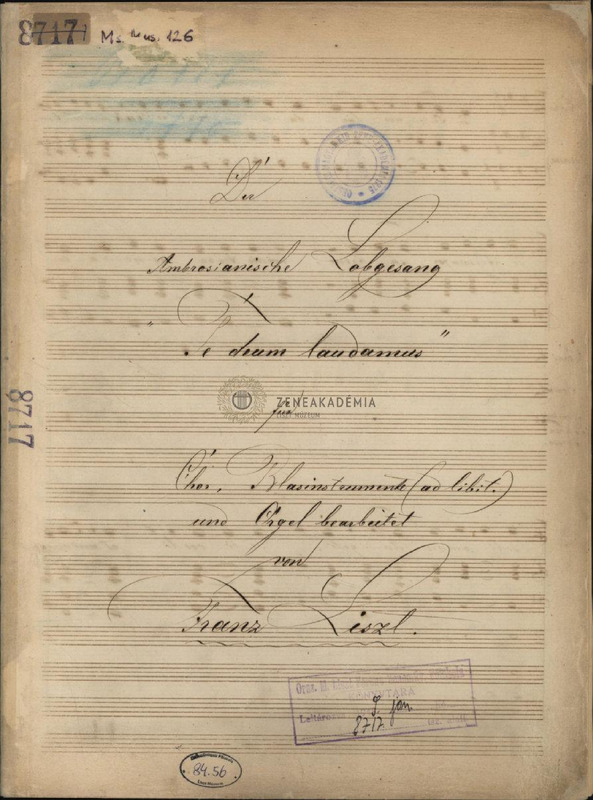 8717
Ms. Mus. 126
Der
Ambrosianische Lobgesang
"Te deum laudamus"
ZENEAKADÉMIA
LISZT MÚZEUM
für
8717
Chor, Blasinstrumente (ad libit.)
und Orgel bearbeitet
von
Franz Liszt.
Orsz. M. Liszt
KÖNYVTÁRA
Leltár
8717
jan
84.56